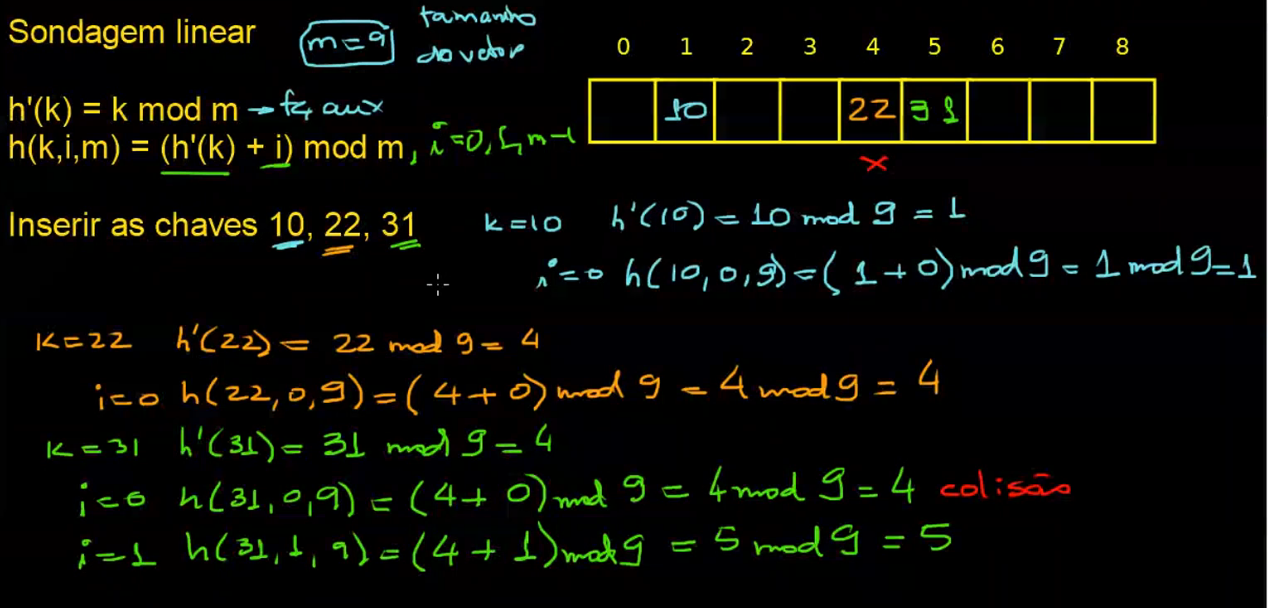 Sondagem linear
m=9 tamanho do vetor
0 1 2 3 4 5 6 7 8
10 22 31
x
h'(k) = k mod m → fç aux
h(k,i,m) = (h'(k) + i) mod m, i=0, 1, m-1
Inserir as chaves 10, 22, 31
k=10 h'(10) = 10 mod 9 = 1
i=0 h(10,0,9)=(1+0) mod 9 = 1 mod 9=1
k=22 h'(22) = 22 mod 9 = 4
i=0 h(22,0,9)=(4+0) mod 9 = 4 mod 9 = 4
k=31 h'(31) = 31 mod 9 = 4
i=0 h(31,0,9)=(4+0) mod 9 = 4 mod 9 = 4 colisão
i=1 h(31,1,9)=(4+1) mod 9 = 5 mod 9 = 5